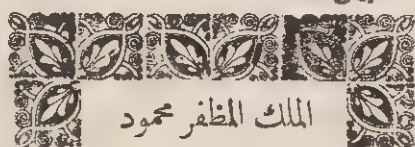 الملك المظفر محمود